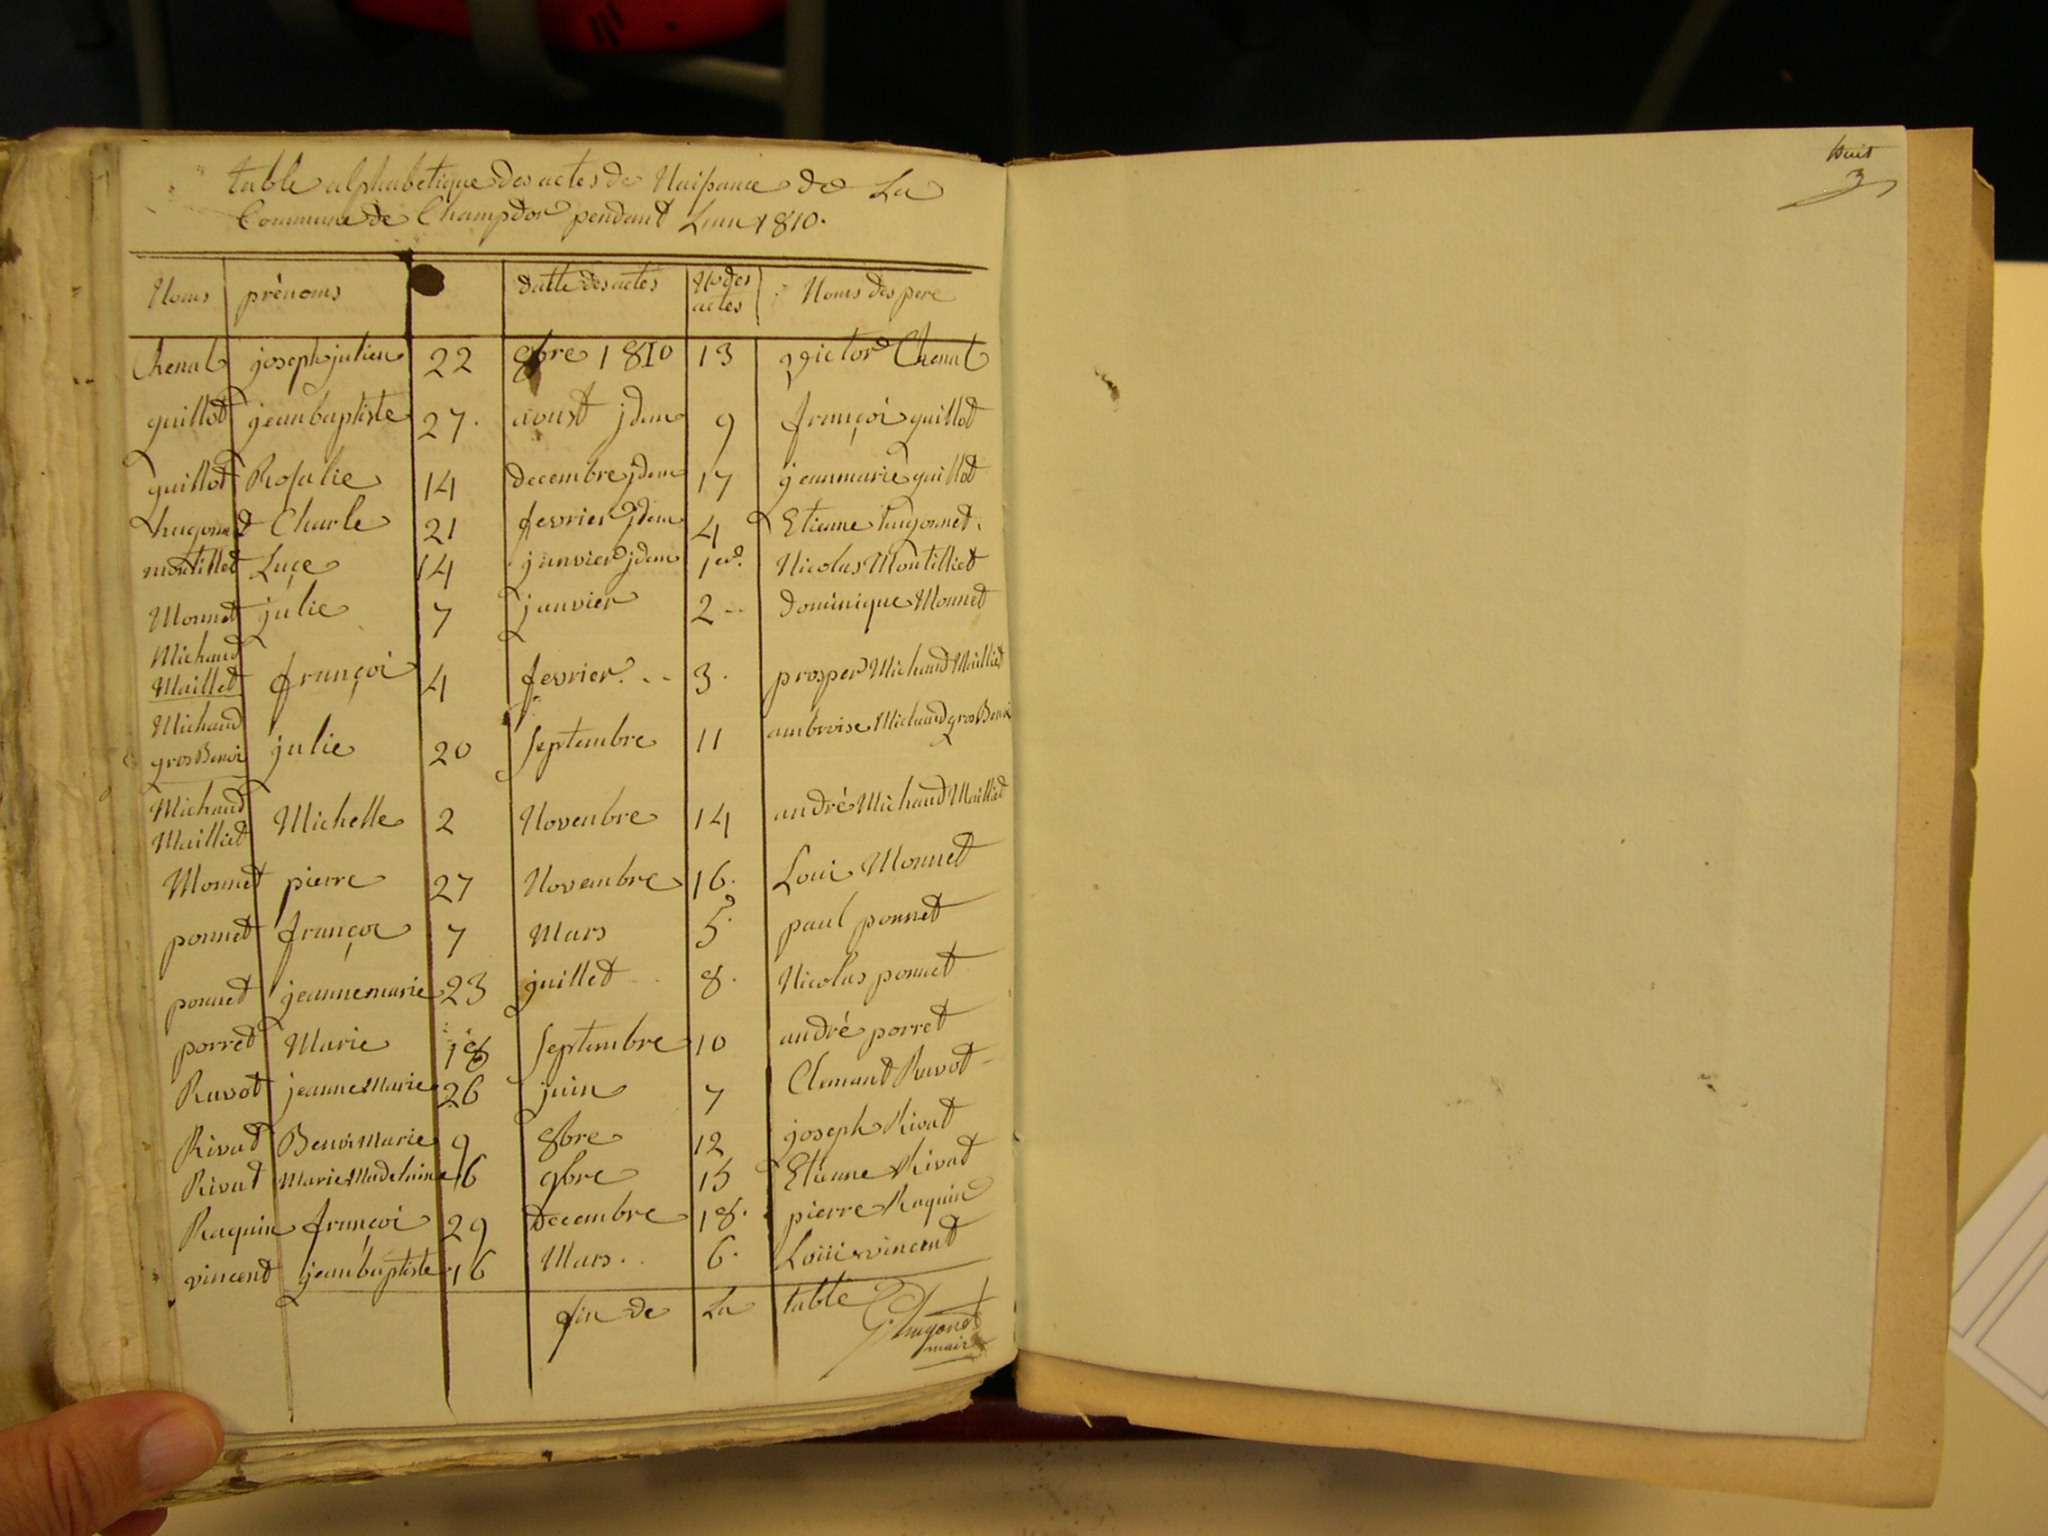 table alphabetique des actes de Naissance de La
Commune de Champdor pendant Lan 1810.
Noms prénoms datte des actes No des actes Noms des pere
Chenal joseph julien 22 8bre 1810 13 victor Chenal
guillot jean baptiste 27. aoust jdem 9 françoi guillot
guillot Rosalie 14 decembre jdem 17 jean marie guillot
hugonnet Charle 21 fevrier jdem 4 Etienne hugonnet.
montillet Luçe 14 janvier jdem 1er. Nicolas Montilliet
Monnet julie 7 janvier 2 -- dominique Monnet
Michaud
Maillet françoi 4 fevrier. - - 3. prosper Michaud Mailliet
Michaud
gros Benoi julie 20 septembre 11 ambroise Michaud gros Benoi
Michaud
Mailliet Michelle 2 Novenbre 14 andré Michaud Mailliet
Monnet pierre 27 Novembre 16. Loui Monnet
ponnet françoi 7 Mars 5. paul ponnet
ponnet jeanne marie 23 juillet 8. Nicolas ponnet
porret Marie 18 septembre 10 andré porret
Ravot jeanne Marie 26 juin 7 Clemant Ravot
Rivat Benoi Marie 9 8bre 12 joseph Rivat
Rivat Marie Madelaine 16 9bre 15 Etienne Rivat
Raquin françoi 29 Decembre 18. pierre Raquin
vincent jean baptiste 16 Mars.. 6. Loui vincent
fin de La table
hugonet
maire
huit